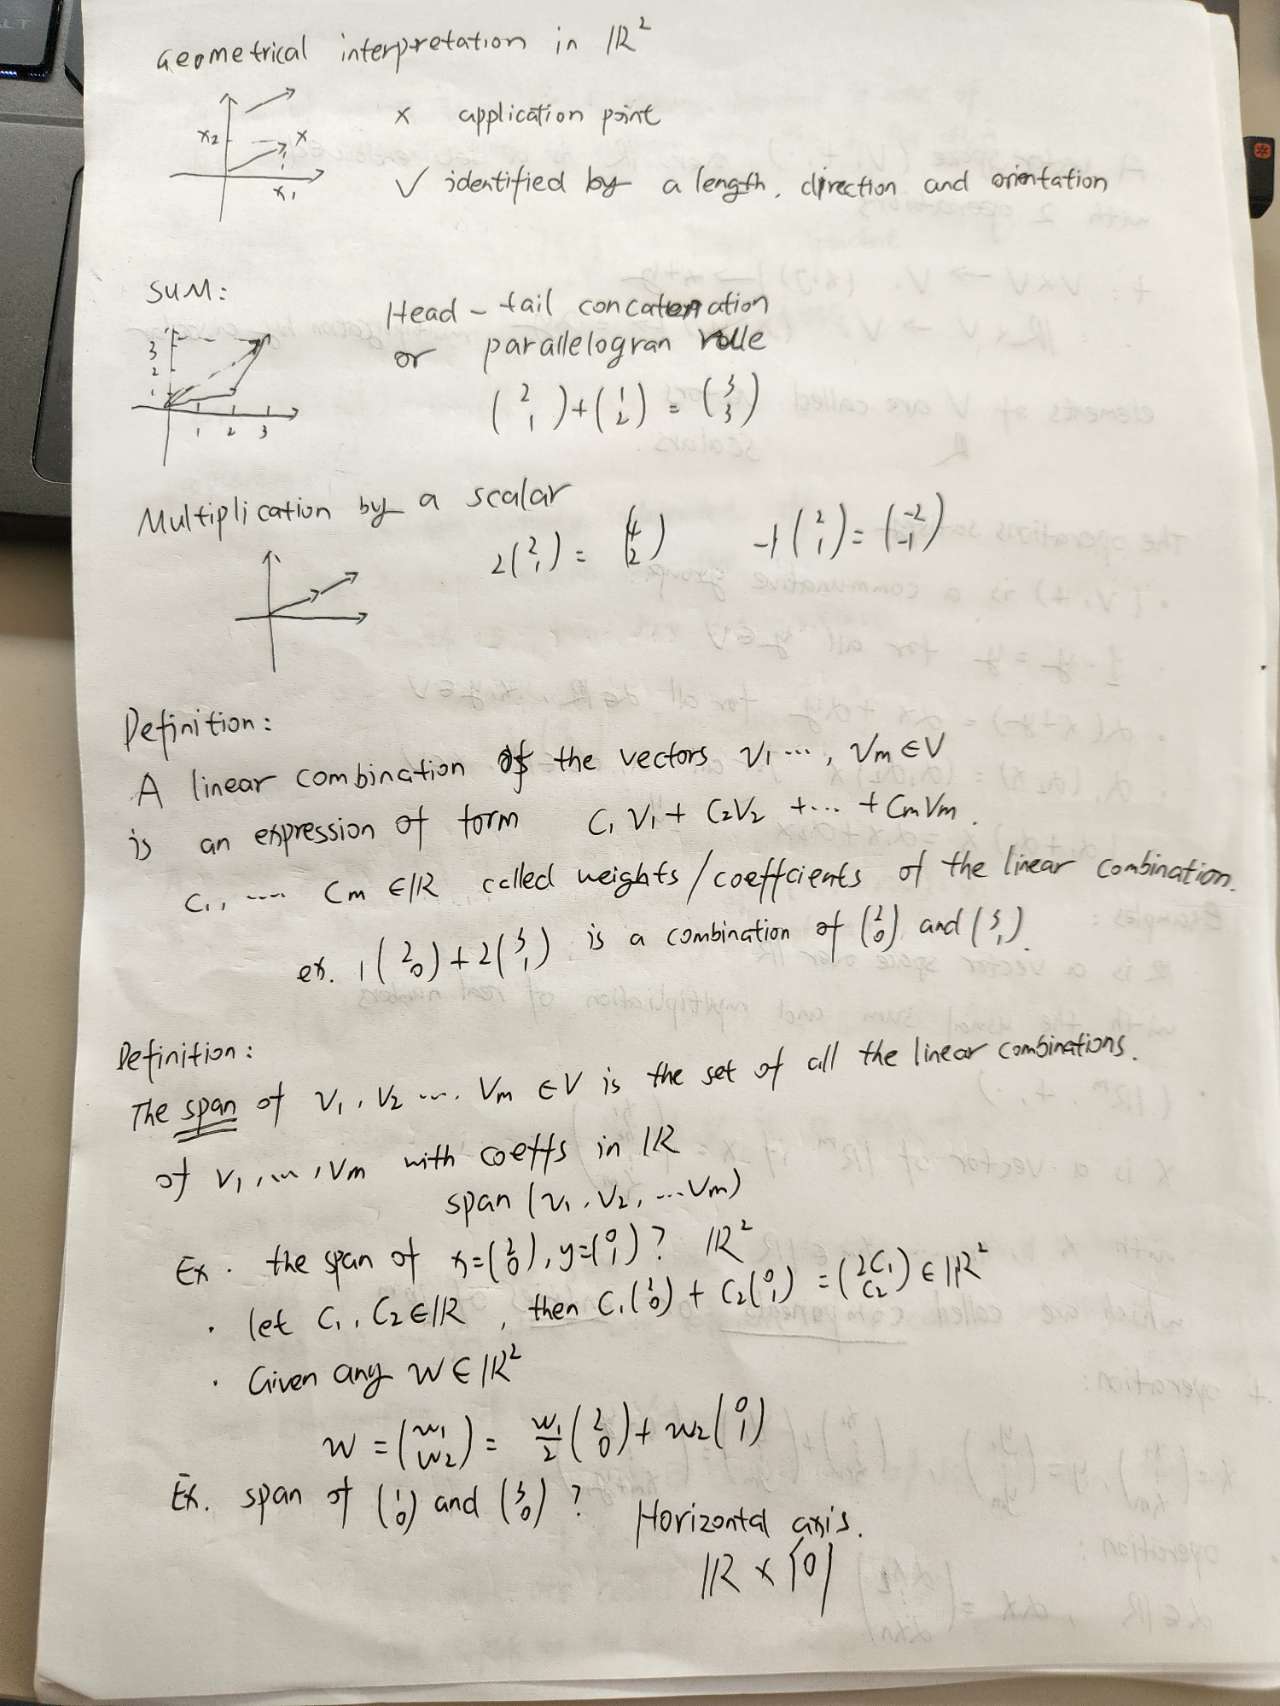 Geometrical interpretation in ℝ²
x application point
x₂ x
x₁
√ identified by a length, direction and orientation
SUM:
Head - tail concatenation
or parallelogran rule
3
2
1
1 2 3
(2 1) + (1 2) = (3 3)
Multiplication by a scalar
2(2 1) = (4 2) -1(2 1) = (-2 -1)
Definition:
A linear combination of the vectors v₁ ..., vm ∈ V
is an expression of form C₁V₁ + C₂V₂ + ... + CmVm.
C₁, .... Cm ∈ ℝ called weights/coeffcients of the linear combination.
ex. 1(2 0) + 2(3 1) is a combination of (2 0) and (3 1).
Definition:
The span of V₁, V₂ .... Vm ∈ V is the set of all the linear combinations.
of V₁, ..., Vm with coeffs in ℝ
span (V₁, V₂, ... Vm)
Ex. the span of x=(2 0), y=(0 1)? ℝ²
· let C₁, C₂ ∈ ℝ, then C₁(2 0) + C₂(0 1) = (2C₁ C₂) ∈ ℝ²
· Given any W ∈ ℝ²
w = (w₁ w₂) = w₁/2 (2 0) + w₂(0 1)
Ex. span of (1 0) and (3 0)? Horizontal axis.
ℝ × {0}